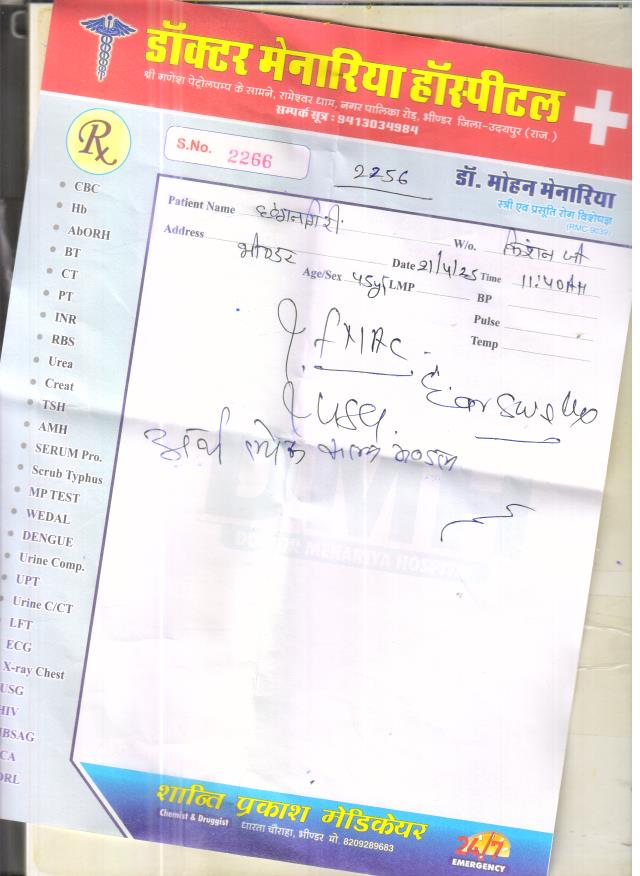 डॉक्टर मेनारिया हॉस्पीटल
श्री गणेश पेट्रोलपम्प के सामने, रामेश्वर धाम, नगर पालिका रोड, भीण्डर जिला-उदयपुर (राज.)
सम्पर्क सूत्र : 9413034984
Rx
S.No. 2266
2256
डॉ. मोहन मेनारिया
स्त्री एवं प्रसूति रोग विशेषज्ञ
(RMC-9039)
Patient Name
W/o. किशन जी
Address भीण्डर
Date 21/4/25 Time 11:40AM
Age/Sex 45y LMP
BP
Pulse
Temp
CBC
Hb
AbORH
BT
CT
PT
INR
RBS
Urea
Creat
TSH
AMH
SERUM Pro.
Scrub Typhus
MP TEST
WEDAL
DENGUE
Urine Comp.
UPT
Urine C/CT
LFT
ECG
X-ray Chest
USG
HIV
HBSAG
CA
DRL
FNAC
USG
शान्ति प्रकाश मेडिकेयर
Chemist & Druggist धारता चौराहा, भीण्डर मो. 8209289683
24/7
EMERGENCY